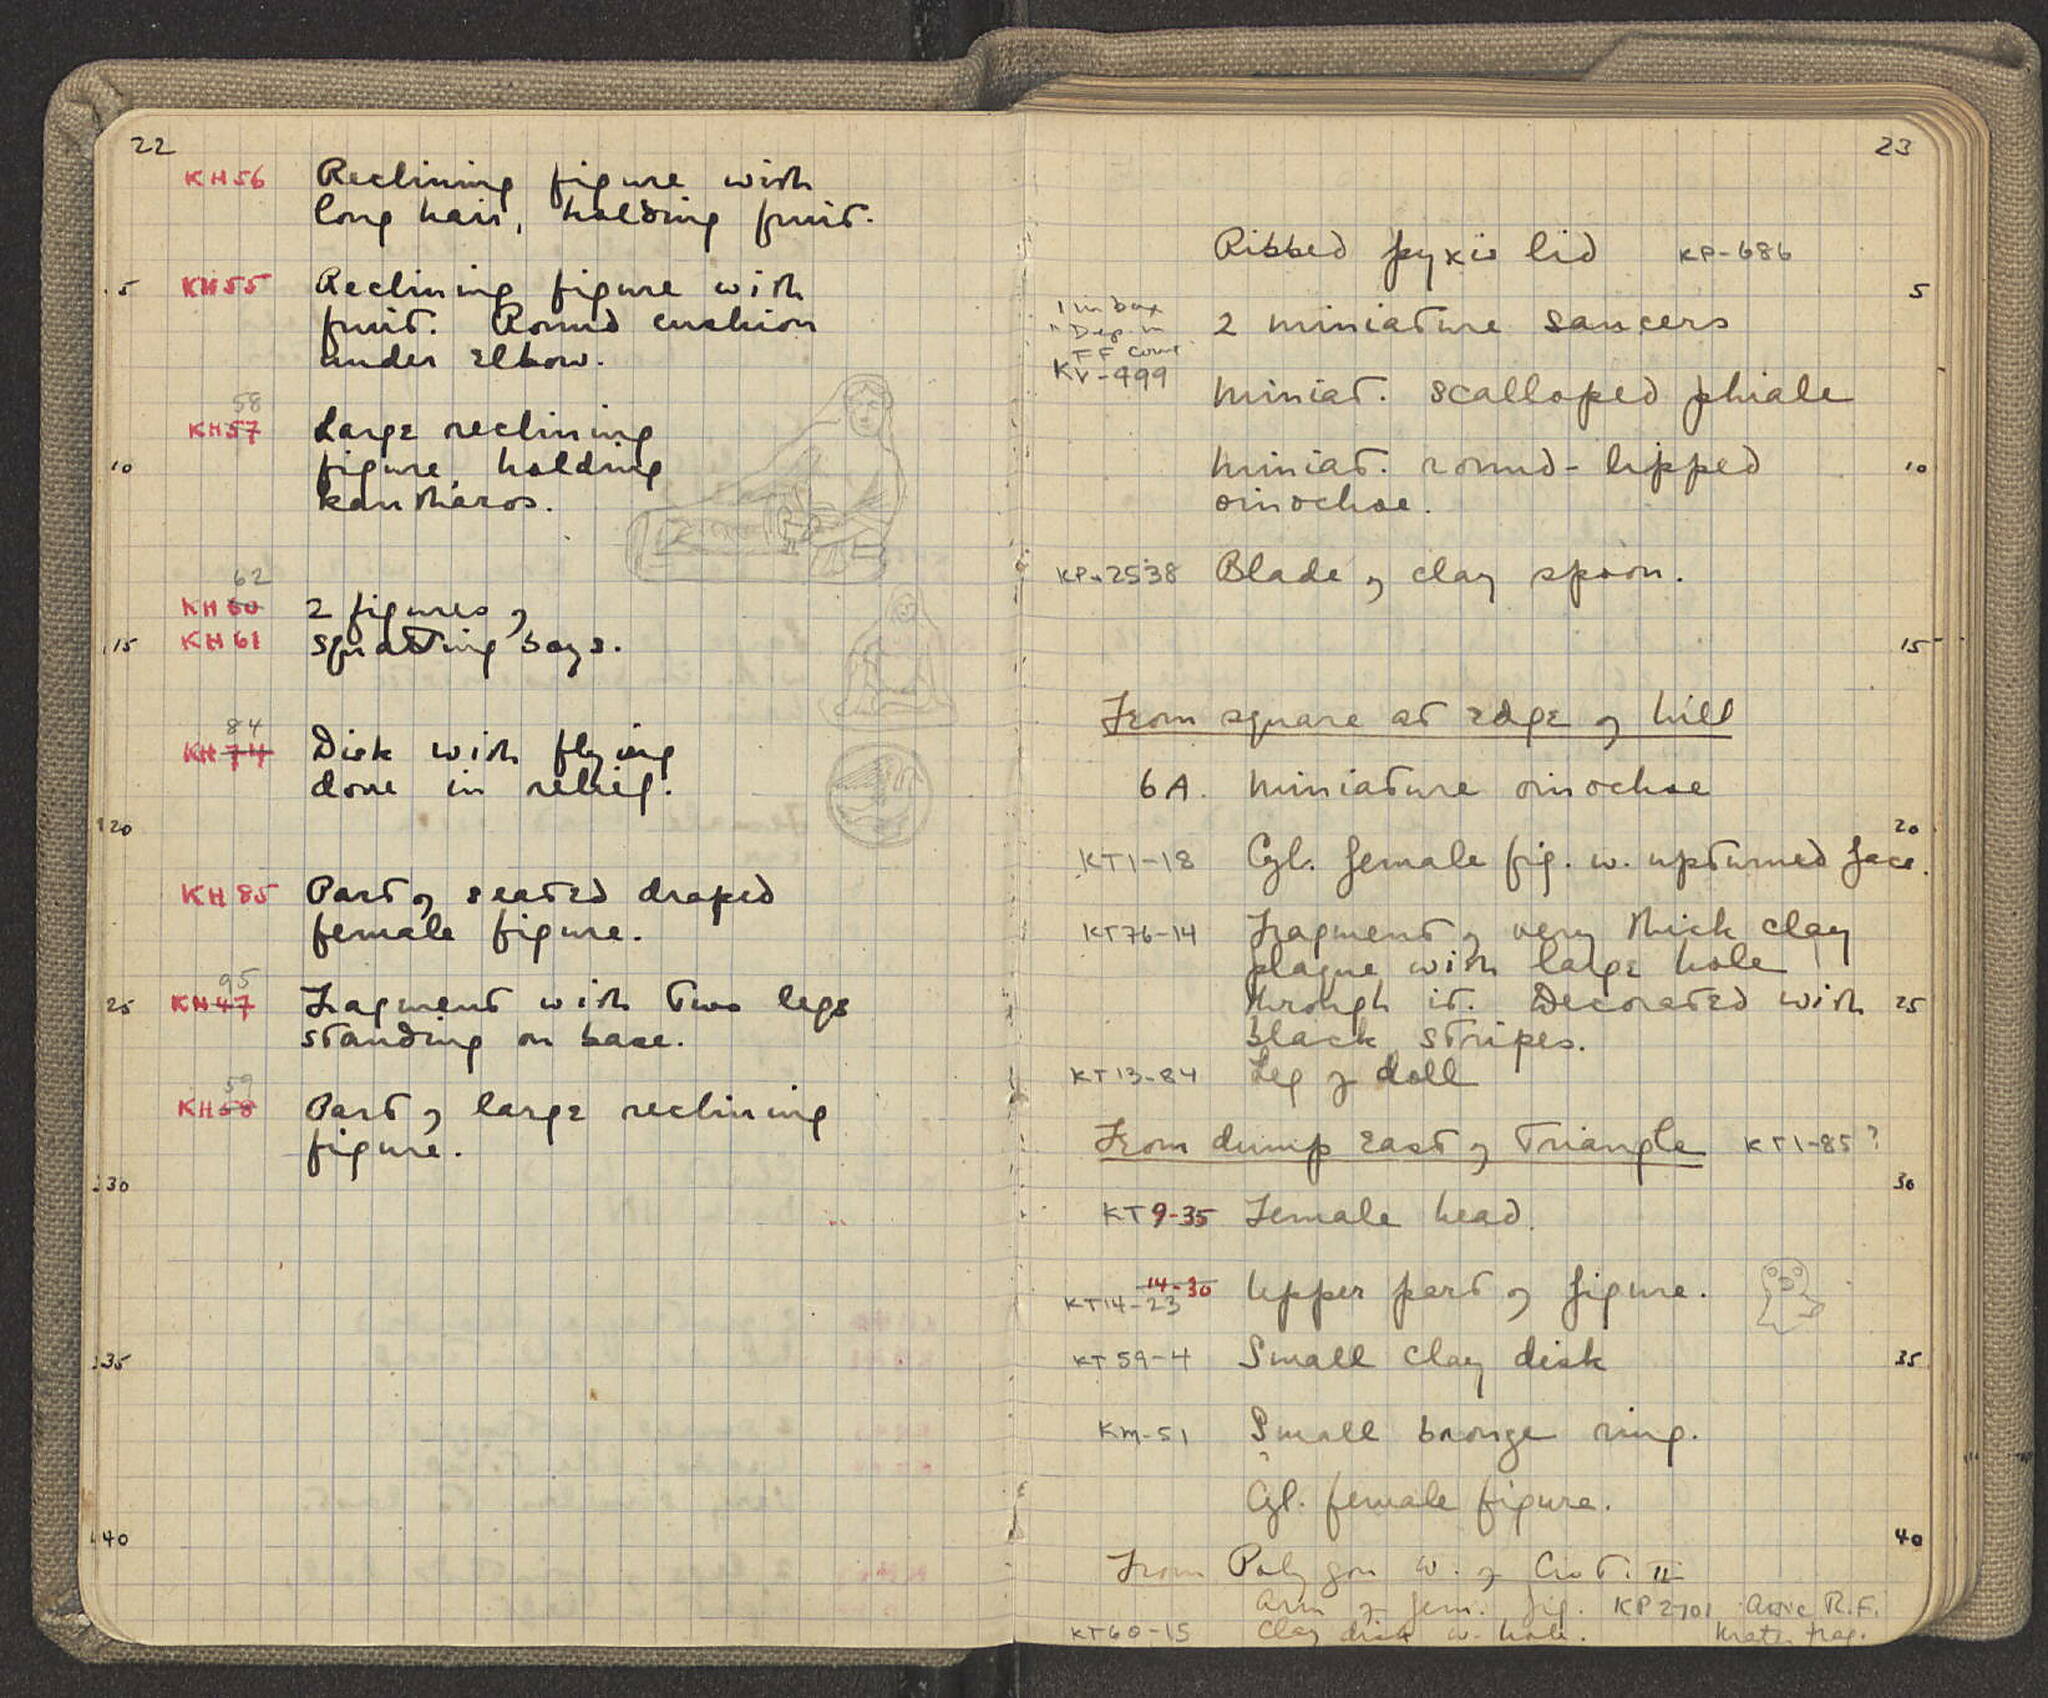 22
KH56 Reclining figure with
long hair, holding fruit.
5 KH55 Reclining figure with
fruit. Round cushion
under elbow.
58
KH57 Large reclining
10 figure holding
kantharos.
62
KH60 2 figures of
15 KH61 squatting boys.
84
KH74 Disk with flying
done in relief.
20
KH85 Part of seated draped
female figure.
95
25 KH47 Fragment with two legs
standing on base.
59
KH58 Part of large reclining
figure.
30
35
40
23
Ribbed pyxis lid KP-686
5
1 in box
" Dep. in
FF
2 miniature saucers
KV-499
miniat. scalloped phiale
miniat. round-lipped 10
oinochoe.
KP-2538 Blade of clay spoon.
15
From square at edge of hill
6A. miniature oinochoe
20
KT1-18 Cyl. female fig. w. upturned face.
KT76-14 Fragment of very thick clay
plaque with large hole
through it. Decorated with 25
black stripes.
KT13-84 Leg of doll
From dump east of Triangle KT1-85?
30
KT9-35 Female head.
14-30 Upper part of figure.
KT14-23
KT59-4 Small clay disk 35
KM-51 Small bronze ring.
Cyl. female figure.
40
From Polygon w. of Crot. II
Arm of fem. fig. KP2701 Attic R.F.
KT60-15 Clay disk w. hole. krater frag.